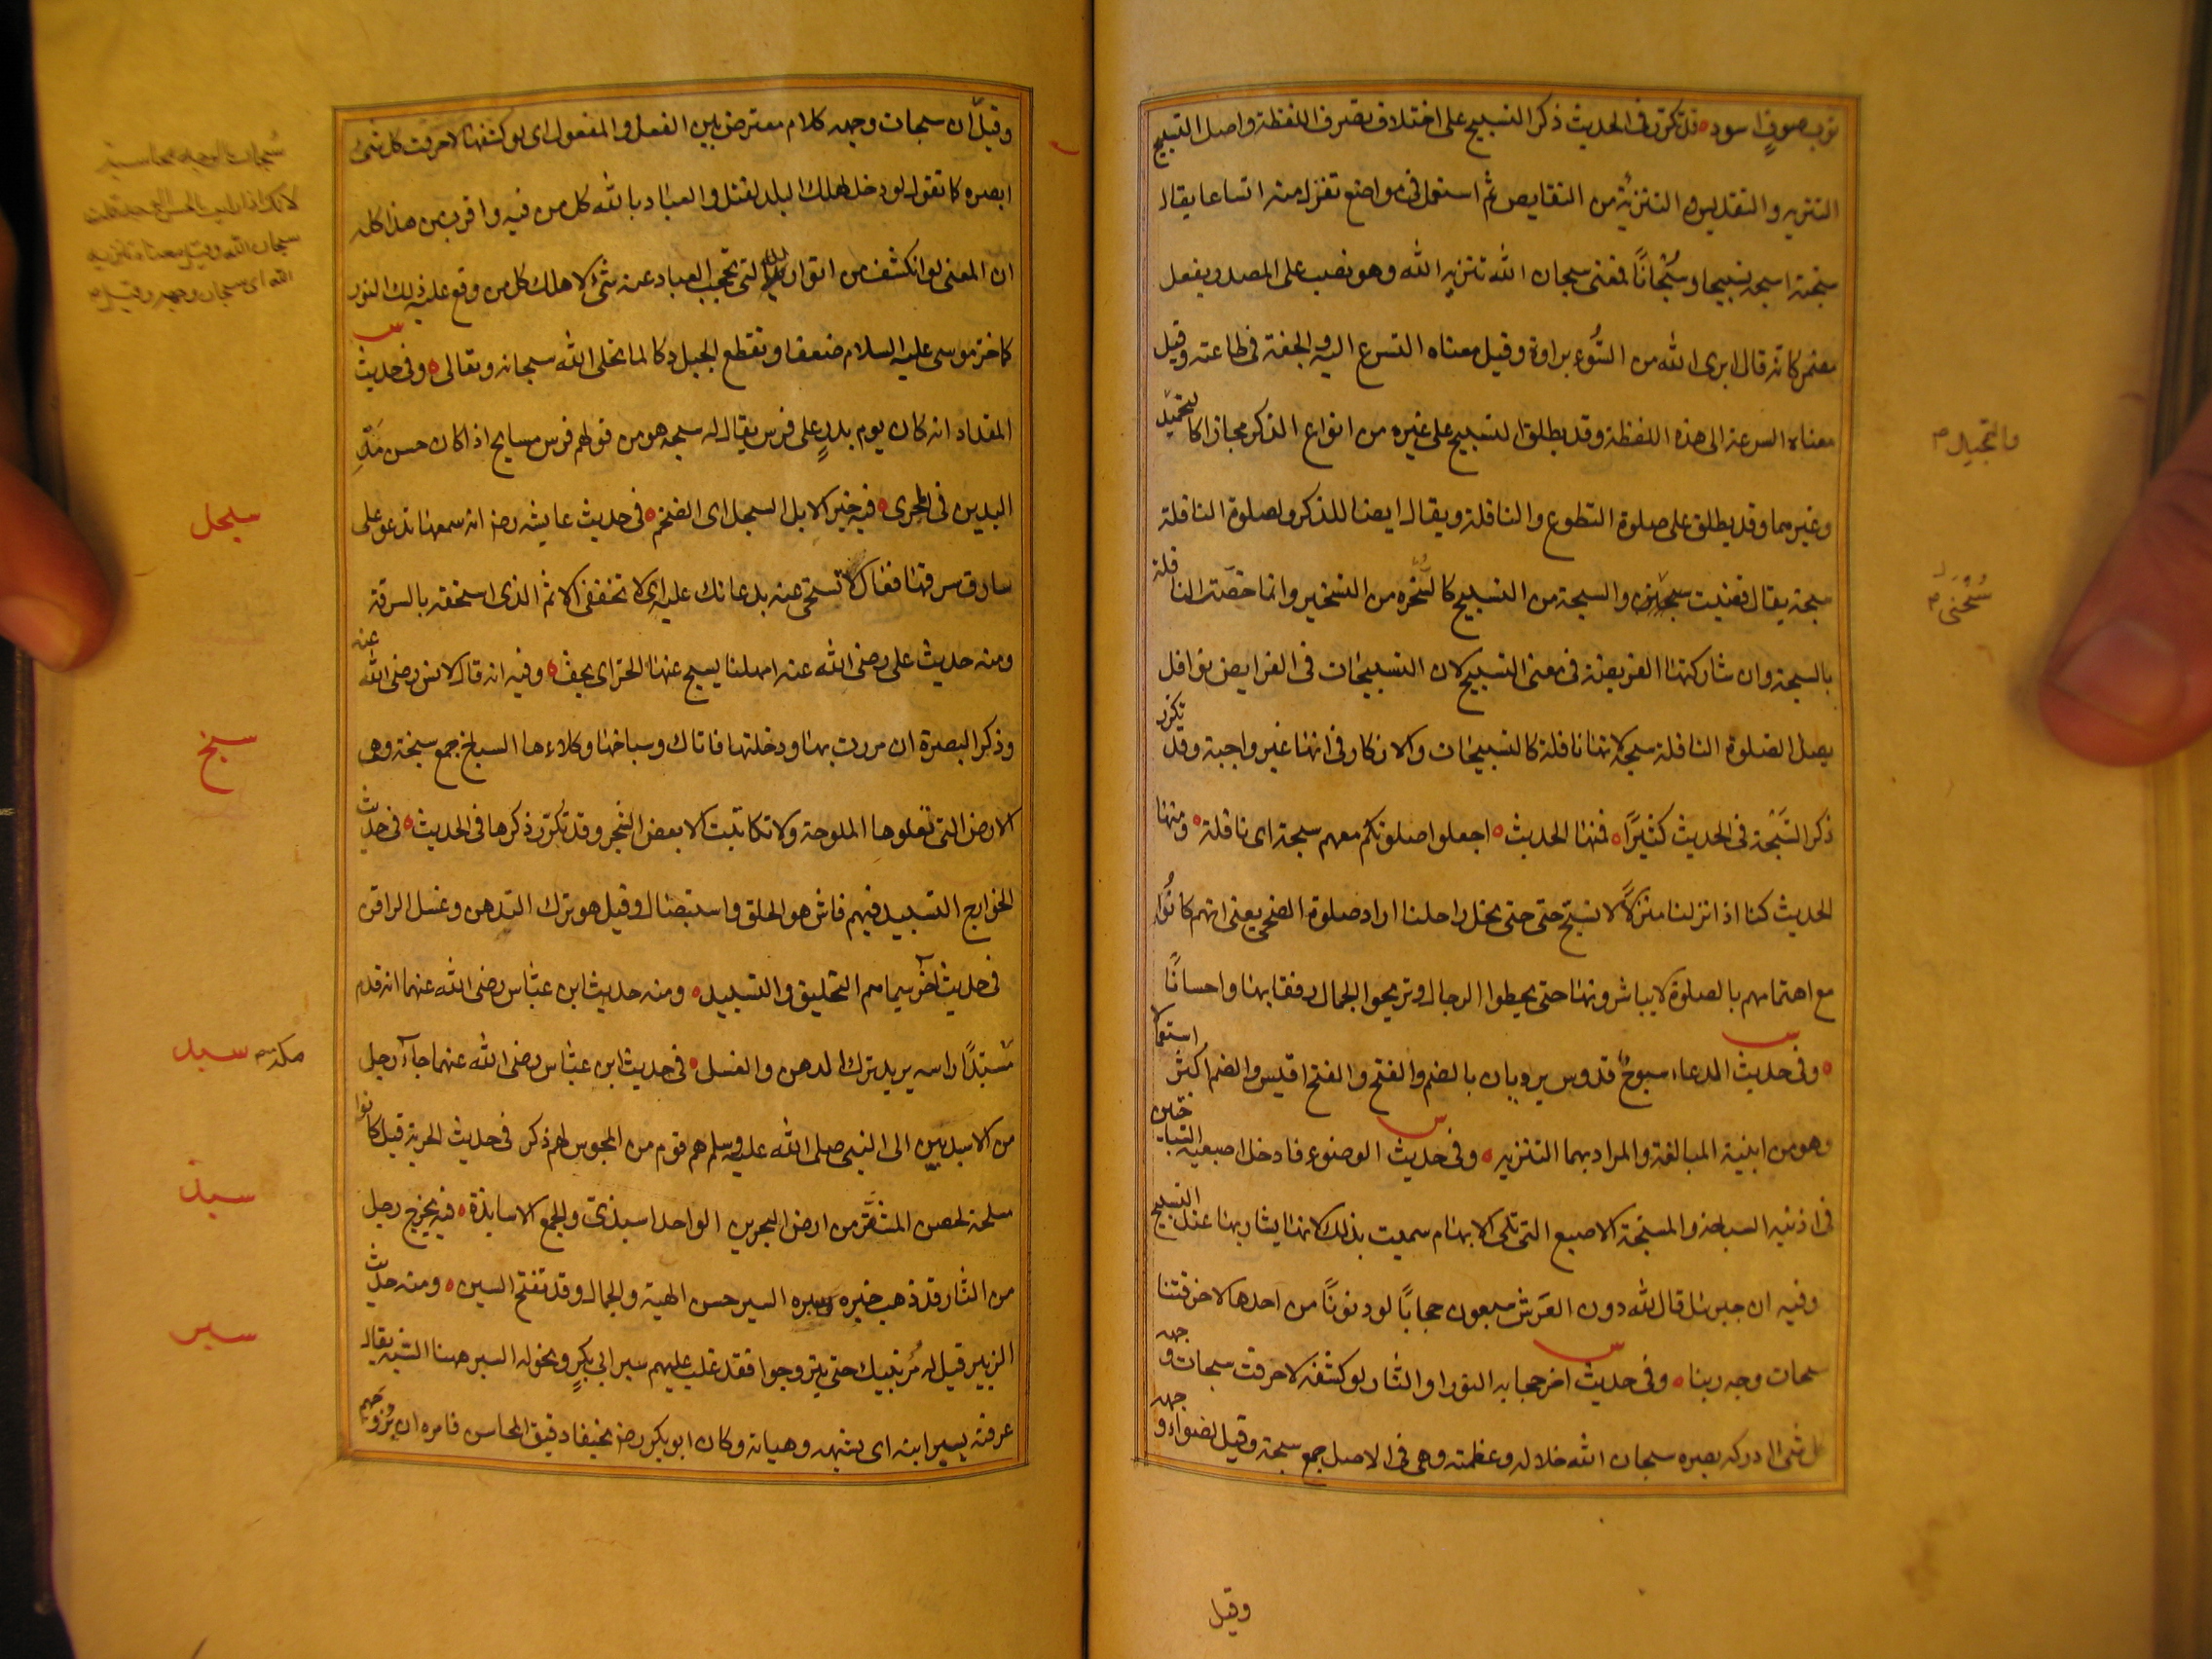 ثوب صوف اسود قد تكرر فى الحديث ذكر التسبيح على اختلاف تصرف اللفظة واصل التسبيح
التنزيه والتقديس والتنزية من النقايص ثم استعمل فى مواضع تقرب منه اتساعا يقال
سبحته اسبحه تسبيحا وسُبْحانًا فمعنى سبحان الله تنزيه الله وهو نصب على المصدر بفعل
مضمر كانه قال ابرى الله من السُّوء براءة وقيل معناه التسرع اليه والخفة فى طاعته وقيل
معناه السرعة الى هذه اللفظة وقد يطلق التسبيح على غيره من انواع الذكر مجازا كالتحميد
والتمجيد م
وغيرهما وقد يطلق على صلوة التطوع والنافلة ويقال ايضا للذكر ولصلوة النافلة
سبحة يقال قضيت والسبحة من التسبيح كالسُّخرة من التسخير وانما خصّت النافلة
سُبْحتى م
بالسبحة وان شاركتها الفريضة فى معنى التسبيح لان التسبيحات فى الفرايض نوافل
الصلوة النافلة سبحة لانها نافلة كالتسبيحات والاذكار فى انها غير واجبة وقد تكرر
ذكر السُّبْحة فى الحديث كثيرًا فمنها الحديث اجعلوا صلوتكم معهم سبحة اى نافلة ومنها
الحديث كنا اذا نزلنا منزلًا لا نسبّح حتى حتى يحل راحلنا اراد صلوة الضحى يعنى انهم كانُوا
مع اهتمامهم بالصلوة لا يباشرونها حتى يحطوا الرحال ويريحوا الجمال رفقا بها واحسانًا
وفى حديث الدعاء سبوحٌ قدوس يرويان بالضم والفتح والفتح اقيس والضم اكثر استعمالا
وهو من ابنية المبالغة والمراد بهما التنزيه وفى حديث الوضوء فادخل اصبعيه السباحتين
فى اذنيه السباحة والمسبّحة الاصبع التى تلى الابهام سميت بذلك لانها يشار بها عند التسبيح
وفيه ان جبرئل قال لله دون العَرش سبعون حجابًا لو دنونًا من احدها لاحرقتنا
سبحات وجه ربنا وفى حديث اخر حجابه النور او النار لو كشفه لاحرقت سبحات وجهه
كل شئ ادركه بصره سبحان الله جلاله وعظمته وهى فى الاصل جمع سبحة وقيل اضواء وجهه
وقيل
وقيل ان سبحات وجهه كلام معترض بين الفعل والمفعول اى لو كشفها لاحرقت كل شئ
سُبحات الوجه محاسنه
لانك اذا رايت الحسن الوجه قلت
سبحان الله وقيل معناه تنزيه
الله اى سبحان وجهه وقيل م
ابصره كما تقول لو دخل الملك البلد لقتل والعياذ بالله كل من فيه واقرب من هذا كله
ان المعنى لو انكشف من انوار الله التى تحجب العباد عنه شئ لاهلك كل من وقع عليه ذلك النور
كما خر موسى عليه السلام صعقا وتقطع الجبل دكا لما تجلى الله سبحانه وتعالى وفى حديث
المقداد انه كان يوم بدرٍ على فرس يقال له سبحه هو من قولهم فرس مسابح اذا كان حسن مدّ
اليدين فى الجرى فيه خير الابل السبحل اى الضخم فى حديث عايشه رضى انه سمعها تدعو على
سبحل
سارق سرقها فقال لا تسبخى عنه بدعائك عليه اى لا تخففى الاثم الذى استحقه بالسرقة
ومنه حديث على رضى الله عنه امهلنا يسبخ عنها الحر اى يخف وفيه انه قال لانس رضى الله عنه
وذكر البصرة ان مررت بها ودخلتها فاياك وسباخها وكلاءها السباخ جمع سبخة وهى
سبخ
الارض التى تعلوها الملوحة ولا تكاد تنبت الا بعض الشجر وقد تكرّر ذكرها فى الحديث فى حديث
الخوارج التسبيد فيهم فاش هو الحلق واستيصال وقيل هو ترك التدهن وغسل الراس
فى حديث آخر سيماهم التحليق والتسبيد ومنه حديث ابن عبّاس رضى الله عنهما انه قدم
مُسَبّدًا راسه يريد ترك الدهن والغسل فى حديث ابن عباس رضى الله عنهما جاء رجل
مكة م سبد
من الاسبديين الى النبى صلى الله عليه وسلم هم قوم من المجوس لهم ذكر فى حديث الجزية قيل كانوا
مسلحة لحصن المشقّر من ارض البحرين الواحد اسبذىّ والجمع الاسابذة فيه يخرج رجل
سبذ
من النار قد ذهب حبره وسبره السبر حسن الهيئة والجمال وقد تفتح السين ومنه حديث
الزبير قيل له مُر بنيك حتى يتزوجوا فقد غلب عليهم سبر ابى بكرٍ ونحوله السبر ههنا الشبه يقال
سبر
عرفته بسبر ابيه اى بشبهه وهيأته وكان ابو بكر رضى نحيفا دقيق المحاسن فامره ان يُزوّجهم